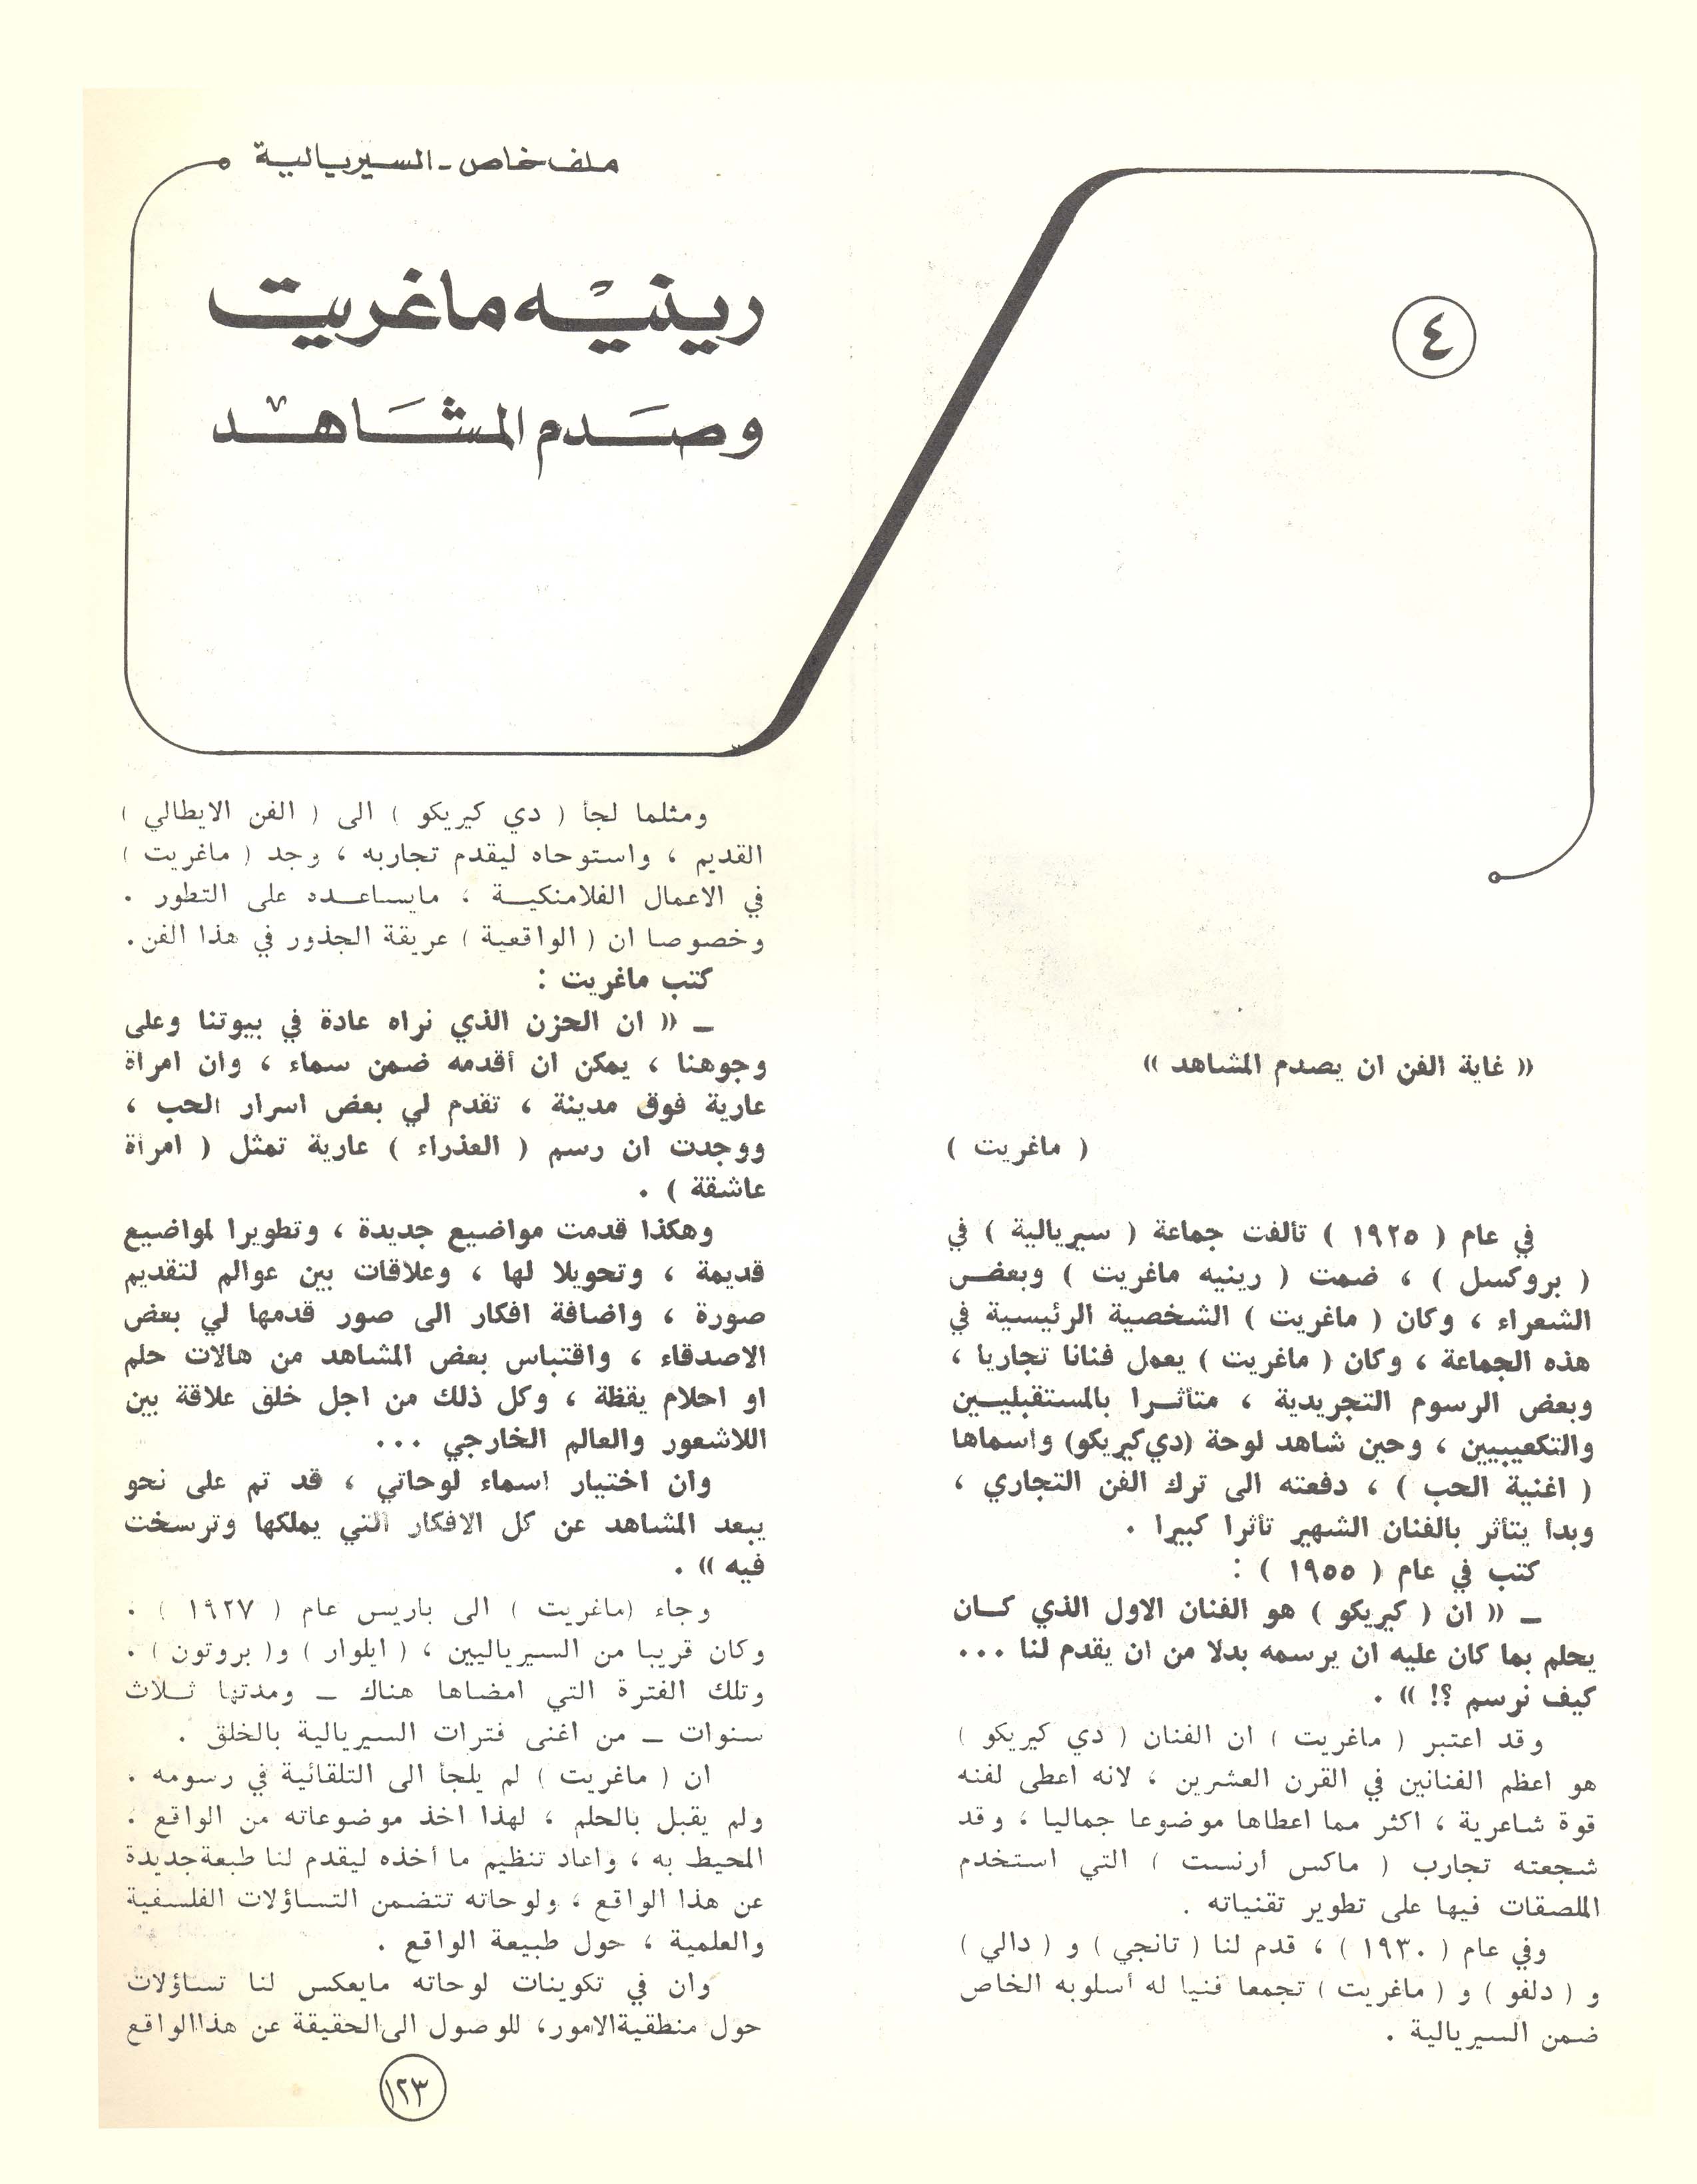 ملف خاص - السيريالية
رينيه ماغريت
وصدم المشاهد
٤
« غاية الفن ان يصدم المشاهد »
( ماغريت )
في عام ( ١٩٢٥ ) تألفت جماعة ( سيريالية ) في
( بروكسل ) ، ضمت ( رينيه ماغريت ) وبعض
الشعراء ، وكان ( ماغريت ) الشخصية الرئيسية في
هذه الجماعة ، وكان ( ماغريت ) يعمل فنانا تجاريا ،
وبعض الرسوم التجريدية ، متأثرا بالمستقبليين
والتكعيبيين ، وحين شاهد لوحة (دي كيريكو) واسماها
( اغنية الحب ) ، دفعته الى ترك الفن التجاري ،
وبدأ يتأثر بالفنان الشهير تأثرا كبيرا .
كتب في عام ( ١٩٥٥ ) :
ـ « ان ( كيريكو ) هو الفنان الاول الذي كان
يحلم بما كان عليه ان يرسمه بدلا من ان يقدم لنا ...
كيف نرسم ؟! » .
وقد اعتبر ( ماغريت ) ان الفنان ( دي كيريكو )
هو اعظم الفنانين في القرن العشرين ، لانه اعطى لفنه
قوة شاعرية ، اكثر مما اعطاها موضوعا جماليا ، وقد
شجعته تجارب ( ماكس أرنست ) التي استخدم
الملصقات فيها على تطوير تقنياته .
وفي عام ( ١٩٣٠ ) ، قدم لنا ( تانجي ) و ( دالي )
و ( دلفو ) و ( ماغريت ) تجمعا فنيا له أسلوبه الخاص
ضمن السيريالية .
ومثلما لجأ ( دي كيريكو ) الى ( الفن الايطالي )
القديم ، واستوحاه ليقدم تجاربه ، وجد ( ماغريت )
في الاعمال الفلامنكية ، مايساعده على التطور .
وخصوصا ان ( الواقعية ) عريقة الجذور في هذا الفن.
كتب ماغريت :
ـ « ان الحزن الذي نراه عادة في بيوتنا وعلى
وجوهنا ، يمكن ان أقدمه ضمن سماء ، وان امرأة
عارية فوق مدينة ، تقدم لي بعض اسرار الحب ،
ووجدت ان رسم ( العذراء ) عارية تمثل ( امرأة
عاشقة ) .
وهكذا قدمت مواضيع جديدة ، وتطويرا لمواضيع
قديمة ، وتحويلا لها ، وعلاقات بين عوالم لتقديم
صورة ، واضافة افكار الى صور قدمها لي بعض
الاصدقاء ، واقتباس بعض المشاهد من هالات حلم
او احلام يقظة ، وكل ذلك من اجل خلق علاقة بين
اللاشعور والعالم الخارجي ...
وان اختيار اسماء لوحاتي ، قد تم على نحو
يبعد المشاهد عن كل الافكار التي يملكها وترسخت
فيه » .
وجاء (ماغريت ) الى باريس عام ( ١٩٢٧ ) .
وكان قريبا من السيرياليين ، ( ايلوار ) و( بروتون ) .
وتلك الفترة التي امضاها هناك ـ ومدتها ثلاث
سنوات ـ من اغنى فترات السيريالية بالخلق .
ان ( ماغريت ) لم يلجأ الى التلقائية في رسومه .
ولم يقبل بالحلم ، لهذا اخذ موضوعاته من الواقع .
المحيط به ، واعاد تنظيم ما أخذه ليقدم لنا طبعة جديدة
عن هذا الواقع ، ولوحاته تتضمن التساؤلات الفلسفية
والعلمية ، حول طبيعة الواقع .
وان في تكوينات لوحاته مايعكس لنا تساؤلات
حول منطقية الامور، للوصول الى الحقيقة عن هذا الواقع
١٢٣